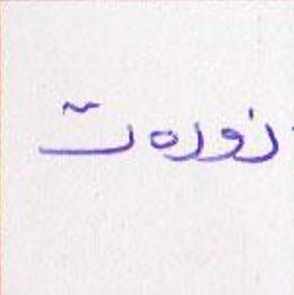 زورەت